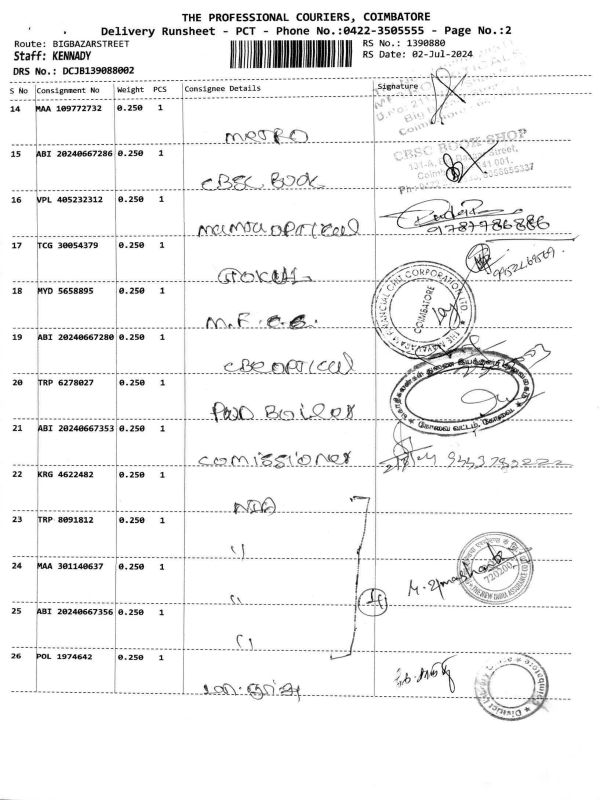 THE PROFESSIONAL COURIERS, COIMBATORE
Delivery Runsheet - PCT - Phone No.:0422-3505555 - Page No.:2
Route: BIGBAZARSTREET
RS No.: 1390880
Staff: KENNADY
RS Date: 02-Jul-2024
DRS No.: DCJB139088002
S No Consignment No Weight PCS Consignee Details Signature
14 MAA 109772732 0.250 1
METRO
15 ABI 20240667286 0.250 1
CBSC BOOK
CBSC BOOK SHOP
16 VPL 405232312 0.250 1
OPTICAL
9787786886
17 TCG 30054379 0.250 1
GOKUL
18 MYD 5658895 0.250 1
M.F.C.S.
FINANCIAL CHIT CORPORATION
COIMBATORE
19 ABI 20240667280 0.250 1
CBE OPTICAL
20 TRP 6278027 0.250 1
PWD Boiler
21 ABI 20240667353 0.250 1
COMISSIONER
22 KRG 4622482 0.250 1
NIA
23 TRP 8091812 0.250 1
"
24 MAA 301140637 0.250 1
"
THE NEW INDIA ASSURANCE CO
720200
25 ABI 20240667356 0.250 1
"
26 POL 1974642 0.250 1